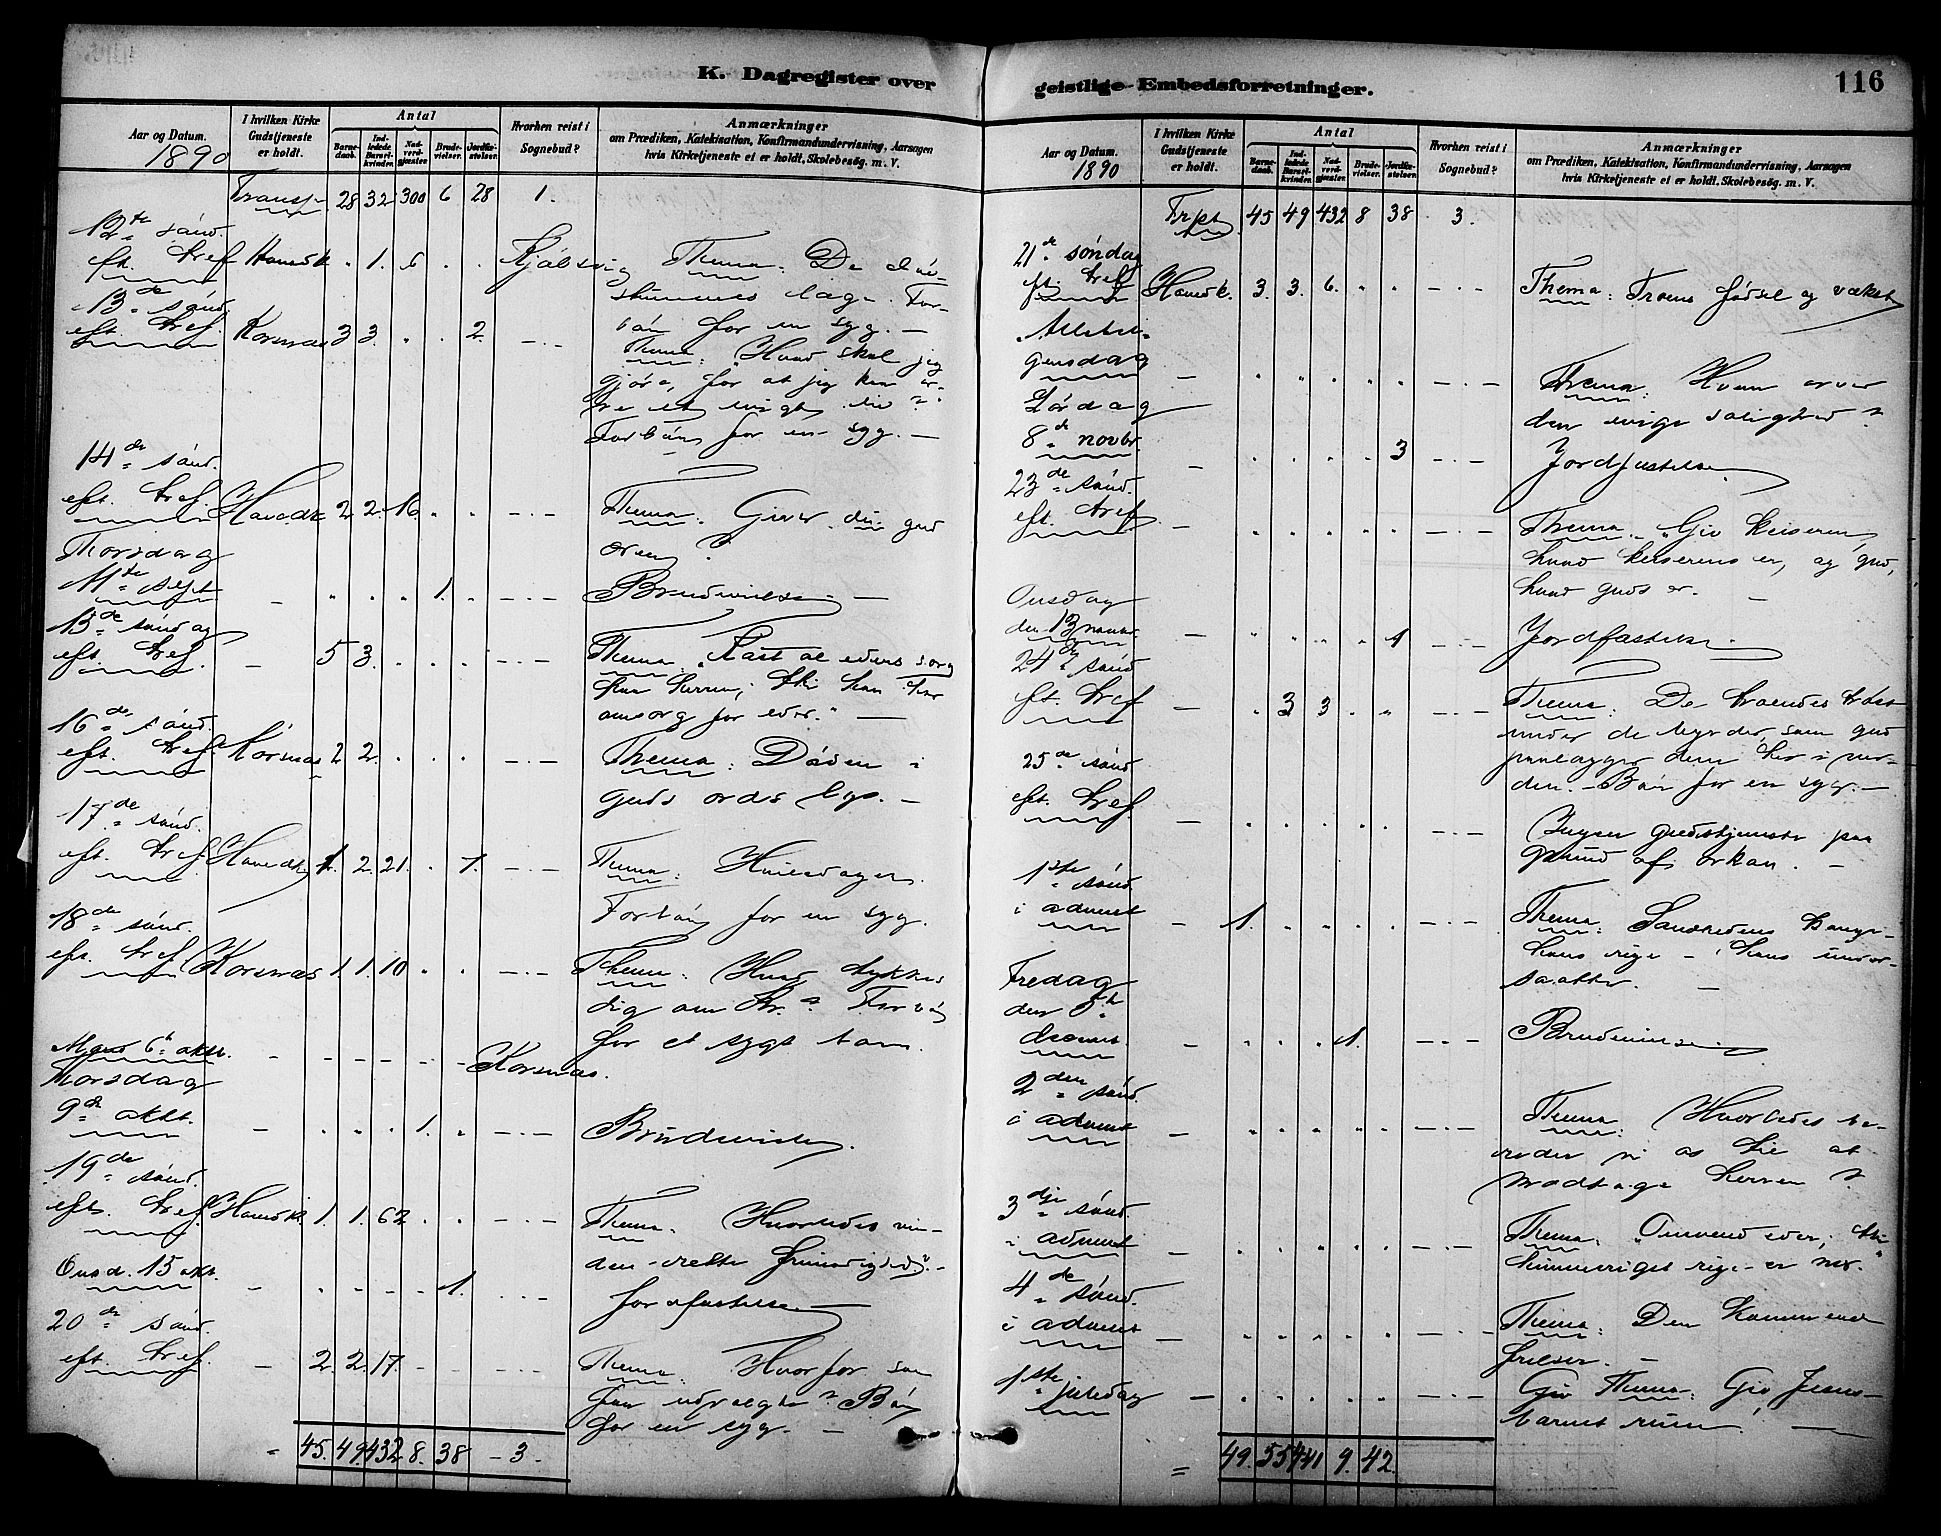 K. Dagregister over
Aar og Datum.
1890
I hvilken Kirke
Gudstjeneste
er holdt.
Antal
Barne-
daab.
Ind-
ledede
Barsel-
kvinder.
Nad-
verd-
gjæster.
Brude-
vielser.
Jordfæ-
stelser.
Hvorhen reist i
Sognebud?
Anmærkninger
om Prædiken, Katekisation, Konfirmandundervisning, Aarsagen
hvis Kirketjeneste ei er holdt, Skolebesög. m. V.
Transp. 28 32 300 6 28 1.
12te sönd.
eft. tref Havedk . 1. 6 . . Thema: De
læge. For-
13de sönd.
bön for en syg. —
eft. tref. Korsnæs 3 3. . . 2. - . - Thema: "Hvad skal jeg
gjöre, for at jeg kan ar-
ve et evigt liv?"
Forbön for en syg. —
14de sönd.
eft. tref. 2 2. 16. . . - . - Thema. Giver du gud
æren?
Torsdag
11te sept - . . . 1. . - . - Brudevielse —
15de söndag
eft. tref. - 5 3. . . . - . - Thema. "Kast al eders sorg
paa Herren, thi han har
omsorg for eder." —
16de sönd.
eft. tref. Korsnæs 2 2. . . . - . - Thema: Döden i
guds ords lys. —
17de sönd.
eft. tref. 1. 2. 21. . 1. - . - Thema: Hviledagen.
Forbön for en syg.
18de sönd.
eft. tref. Korsnæs 1. 1. 10 . . - . - Thema. Hvad tykkes
dig om Kr.? Forbön
for et sygt barn.
Mand 6te oktr. - - - - - - Korsnæs.
Torsdag
9de oktr. - . . . 1. . - . - Brudevielse.
19de sönd.
eft. tref. 1. 1. 62 . . - . - Thema. Hvorledes vin-
des rette frimodighed? -
Onsd. 15 okt. - . . . . 1. . . - Jordfæstelse —
20de sönd.
eft. tref. - 2. 2. 17. - . - . - Thema. Hvorfor saa
faa udvalgte? Bön
for en syg. —
= 45. 49. 432 8. 38 - 3 -
geistlige Embedsforretninger.
116
Aar og Datum.
1890
I hvilken Kirke
Gudstjeneste
er holdt.
Antal
Barne-
daab.
Ind-
ledede
Barsel-
kvinder.
Nad-
verd-
gjæster.
Brude-
vielser.
Jordfæ-
stelser.
Hvorhen reist i
Sognebud?
Anmærkninger
om Prædiken, Katekisation, Konfirmandundervisning, Aarsagen
hvis Kirketjeneste ei er holdt. Skolebesög. m. V.
Trpt. 45 49 432 8 38 . 3.
21de söndag
eft. tref. Havedk. 3. 3. 6. . . - . - Thema: Troens födsel og vækst
Allehel-
gensdag - . . . . . - . - Thema: Hvem arver
den evige salighed?
Lördag
8de novbr. - . . . . 3 - . - Jordfæstelse
23de sönd.
eft. tref. - . . . . . - . - Thema. "Giv keiseren,
hvad keiserens er, og gud,
hvad guds er. —
Onsdag
den 13 novbr. - . . . . 1 - . - Jordfæstelse.
24de sönd
eft. tref - . 3 3. . . - . - Thema: De troendes tröst
under de byrder, som gud
paalægger dem her i ver-
den. - Bön for en syg. —
25de sönd
eft. tref. - . . . . . - . - Ingen gudstjeneste paa
grund af orkan. —
1ste sönd.
i advent - 1. . . . . - . - Thema: Sandhedens konge -
hans rige - hans
saatter. —
Fredag
den 5te
decemb. - . . . 1. . - . - Brudevielse
2den sönd.
i advent - . . . . . - . - Thema: Hvorledes be-
reder vi os til at
modtage Herren?
3dje sönd.
i advent - . . . . . - . - Thema: "Omvend eder, thi
himmeriget rige er nær."
4de sönd.
i advent - . . . . . - . - Thema: Den kommende
frelser. —
1ste juledag - . . . . . - . - Giv Thema: Giv Jesus-
barnet rum! —
= 49. 55 441 9. 42.